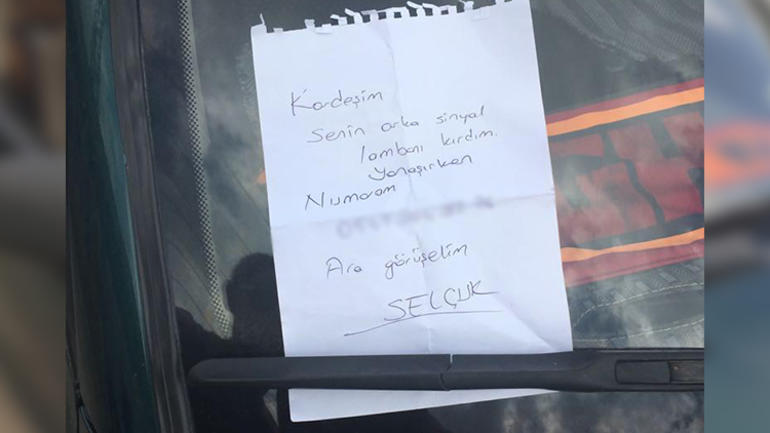 Kardeşim
Senin arka sinyal
lambanı kırdım.
Yanaşırken
Numaram
Ara görüşelim
SELÇUK